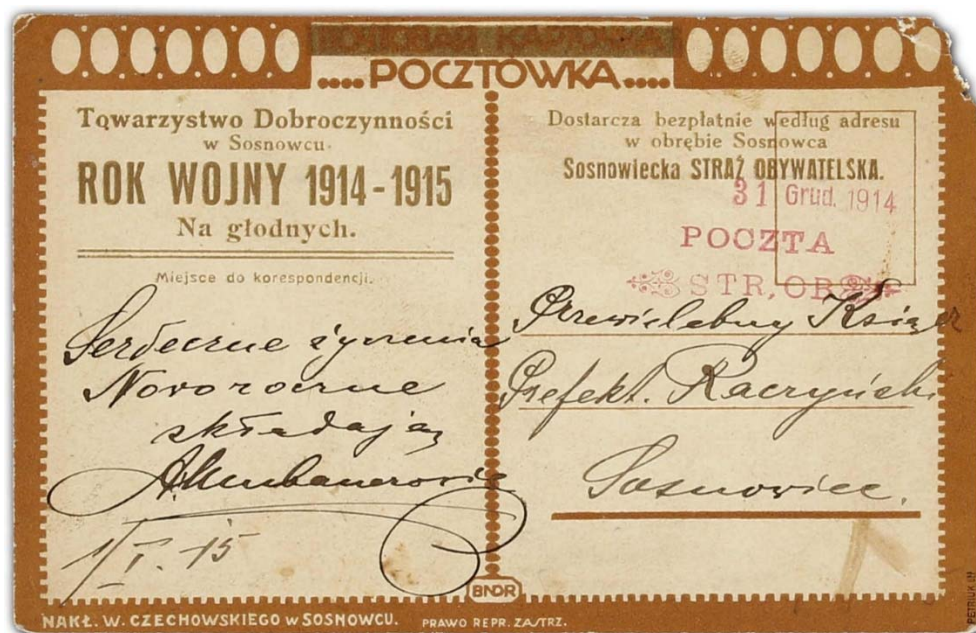 POCZTÓWKA
Towarzystwo Dobroczynności
w Sosnowcu
ROK WOJNY 1914-1915
Na głodnych.
Miejsce do korespondencji.
Serdeczne życzenia
Noworoczne
składają
1/I. 15
Dostarcza bezpłatnie według adresu
w obrębie Sosnowca
Sosnowiecka STRAŻ OBYWATELSKA.
31 Grud. 1914
POCZTA
STR. OB
Przewielebny Ksiądz
Prefekt. Raczyński
Sosnowiec.
BNDR
NAKŁ. W. CZECHOWSKIEGO w SOSNOWCU. PRAWO REPR. ZASTRZ.